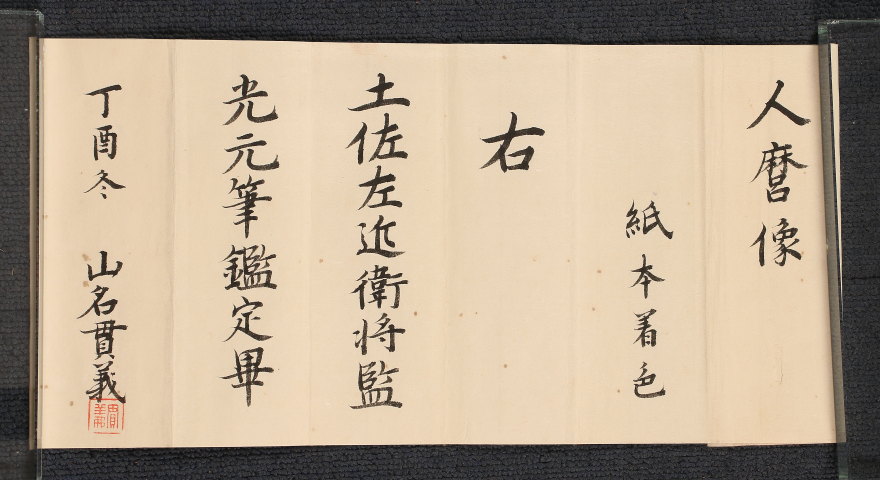 人麿像
紙本着色
右
土佐左近衛将監
光元筆鑑定畢
丁酉冬 山名貫義